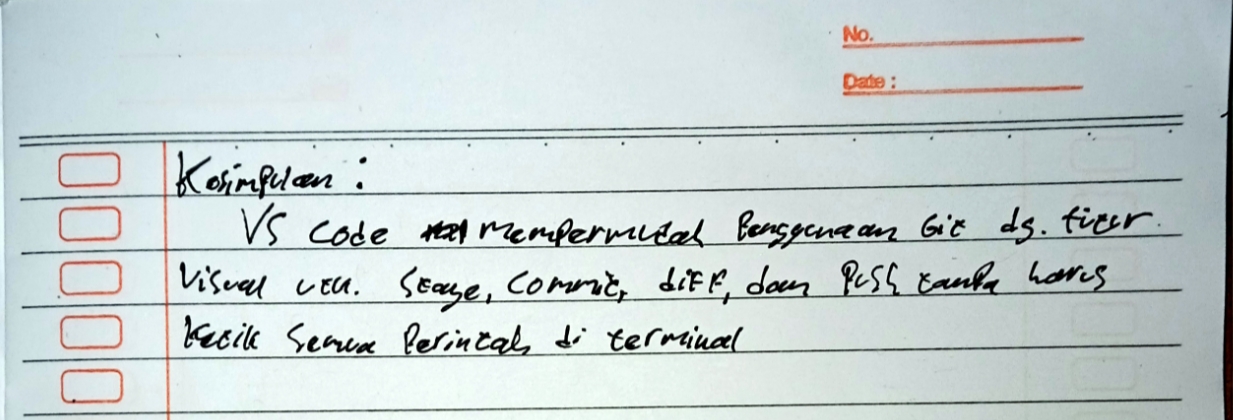 No.
Date :
Kesimpulan :
VS Code mempermudah Penggunaan Git dg. fitur
Visual utk. Stage, Commit, diff, dan Push tanpa harus
Ketik Semua Perintah di terminal